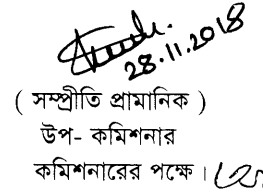 28.11.2018
( সম্প্রীতি প্রামানিক )
উপ- কমিশনার
কমিশনারের পক্ষে ।